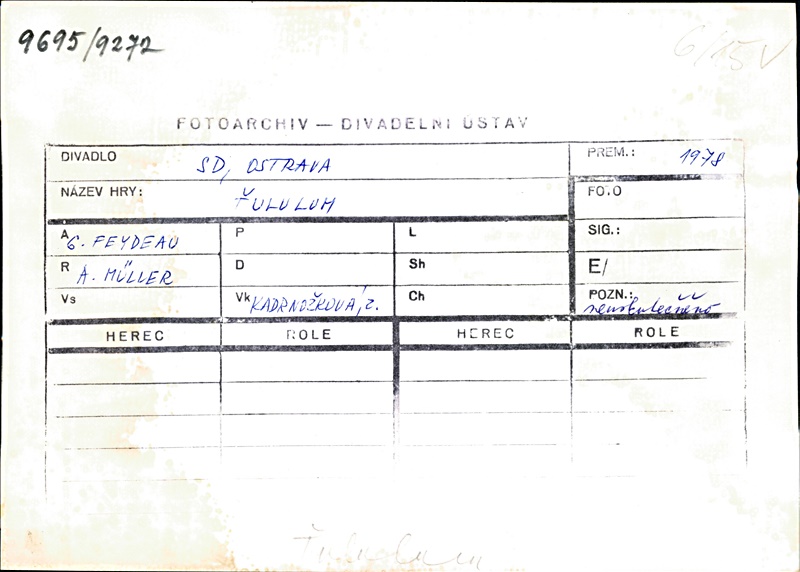 9695/9272
6/15 V
FOTOARCHIV — DIVADELNÍ ÚSTAV
DIVADLO SD, OSTRAVA PREM.: 1978
NÁZEV HRY: ŤULULUM FOTO
A G. FEYDEAU P L SIG.:
R A. MÜLLER D Sh E/
Vs Vk KADRNOŽKOVÁ, Z. Ch POZN.: neuskutečněno
HEREC ROLE HEREC ROLE
Ťululum